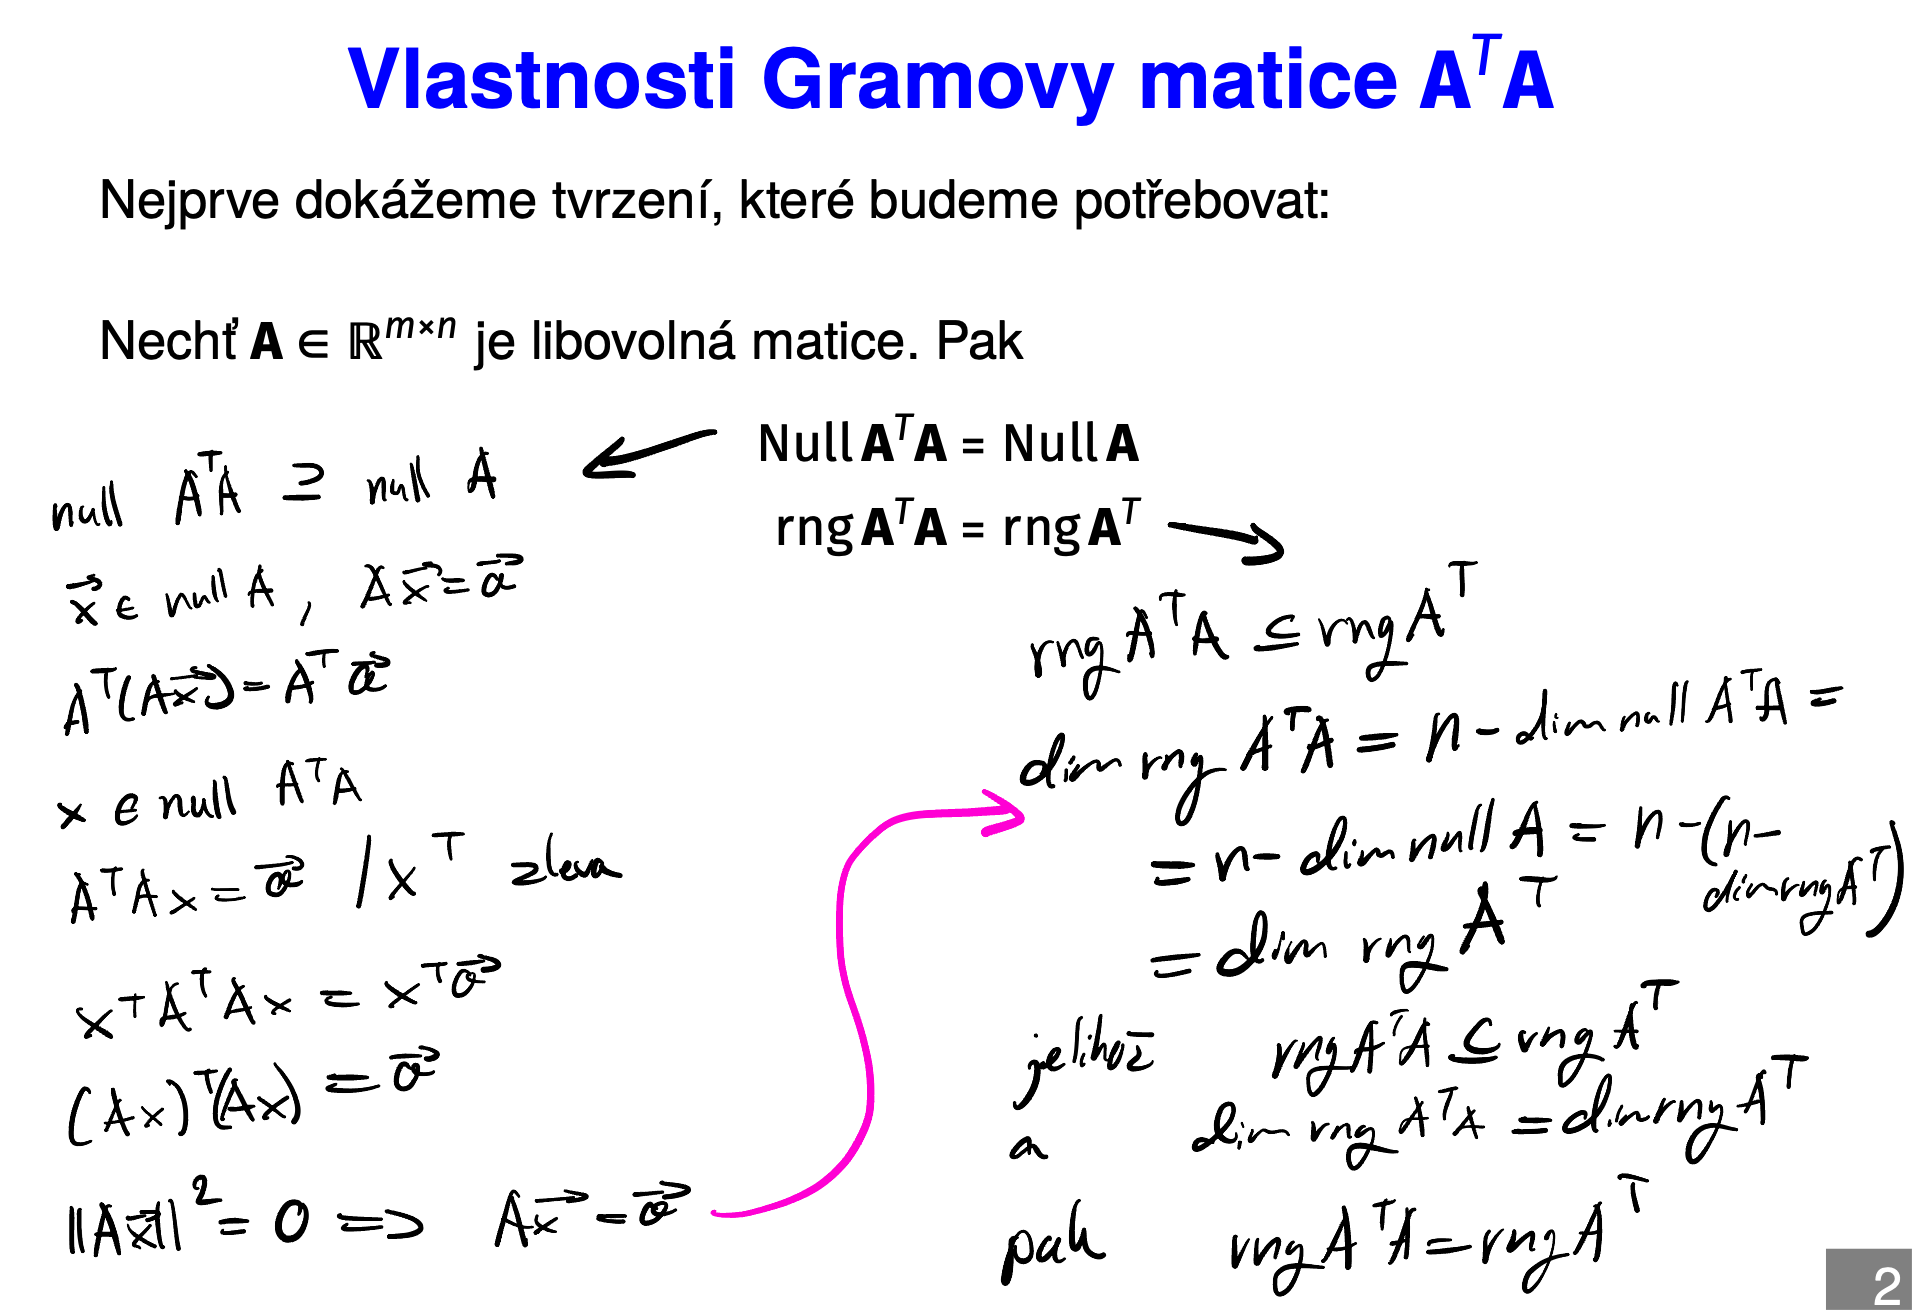 Vlastnosti Gramovy matice AᵀA
Nejprve dokážeme tvrzení, které budeme potřebovat:
Nechť A ∈ ℝᵐˣⁿ je libovolná matice. Pak
Null AᵀA = Null A
rng AᵀA = rng Aᵀ
null AᵀA ⊇ null A
x⃗ ∈ null A , Ax⃗ = o⃗
Aᵀ(Ax⃗) = Aᵀ o⃗
x ∈ null AᵀA
AᵀAx = o⃗ / xᵀ zleva
xᵀAᵀAx = xᵀo⃗
(Ax)ᵀ(Ax) = o⃗
||Ax⃗||² = 0 ⟹ Ax⃗ = o⃗
rng AᵀA ⊆ rng Aᵀ
dim rng AᵀA = n - dim null AᵀA =
= n - dim null A = n - (n -
dim rng Aᵀ)
= dim rng Aᵀ
jelihož rng AᵀA ⊆ rng Aᵀ
a dim rng AᵀA = dim rng Aᵀ
pak rng AᵀA = rng Aᵀ
2